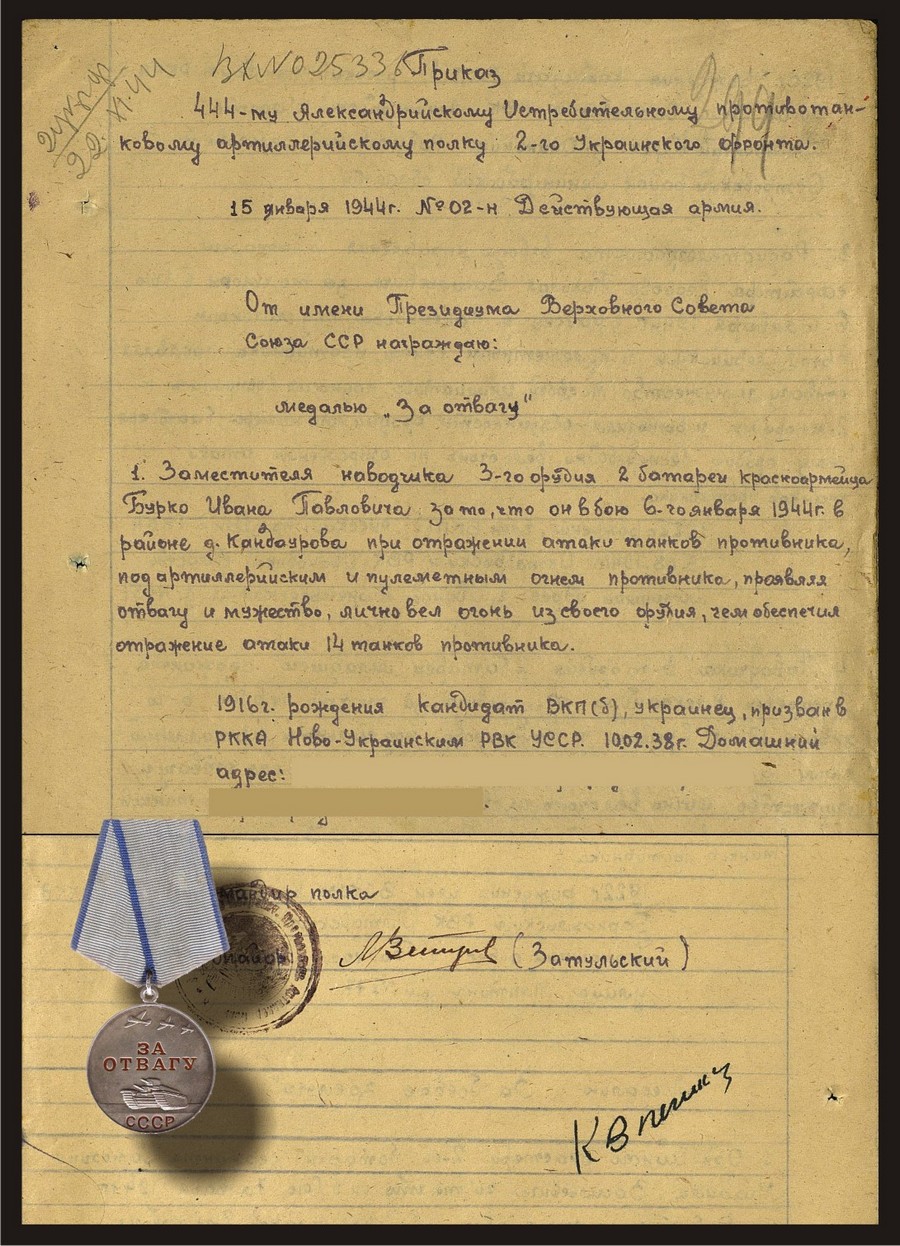 ВХ№02533
Приказ
22.
444-му Александрийскому Истребительному противотан-
ковому артиллерийскому полку 2-го Украинского фронта.
15 января 1944г. №02-н Действующая армия.
От имени Президиума Верховного Совета
Союза ССР награждаю:
медалью „За отвагу"
1. Заместителя наводчика 3-го орудия 2 батареи красноармейца
Бурко Ивана Павловича за то, что он в бою 6-го января 1944г. в
районе д. Кандаурова при отражении атаки танков противника,
под артиллерийским и пулеметным огнем противника, проявляя
отвагу и мужество, лично вел огонь из своего орудия, чем обеспечил
отражение атаки 14 танков противника.
1916г. рождения кандидат ВКП(б), украинец, призван в
РККА Ново-Украинским РВК УССР. 10.02.38г. Домашний
адрес:
мандир полка
майор (Затульский)
ЗА
ОТВАГУ
СССР